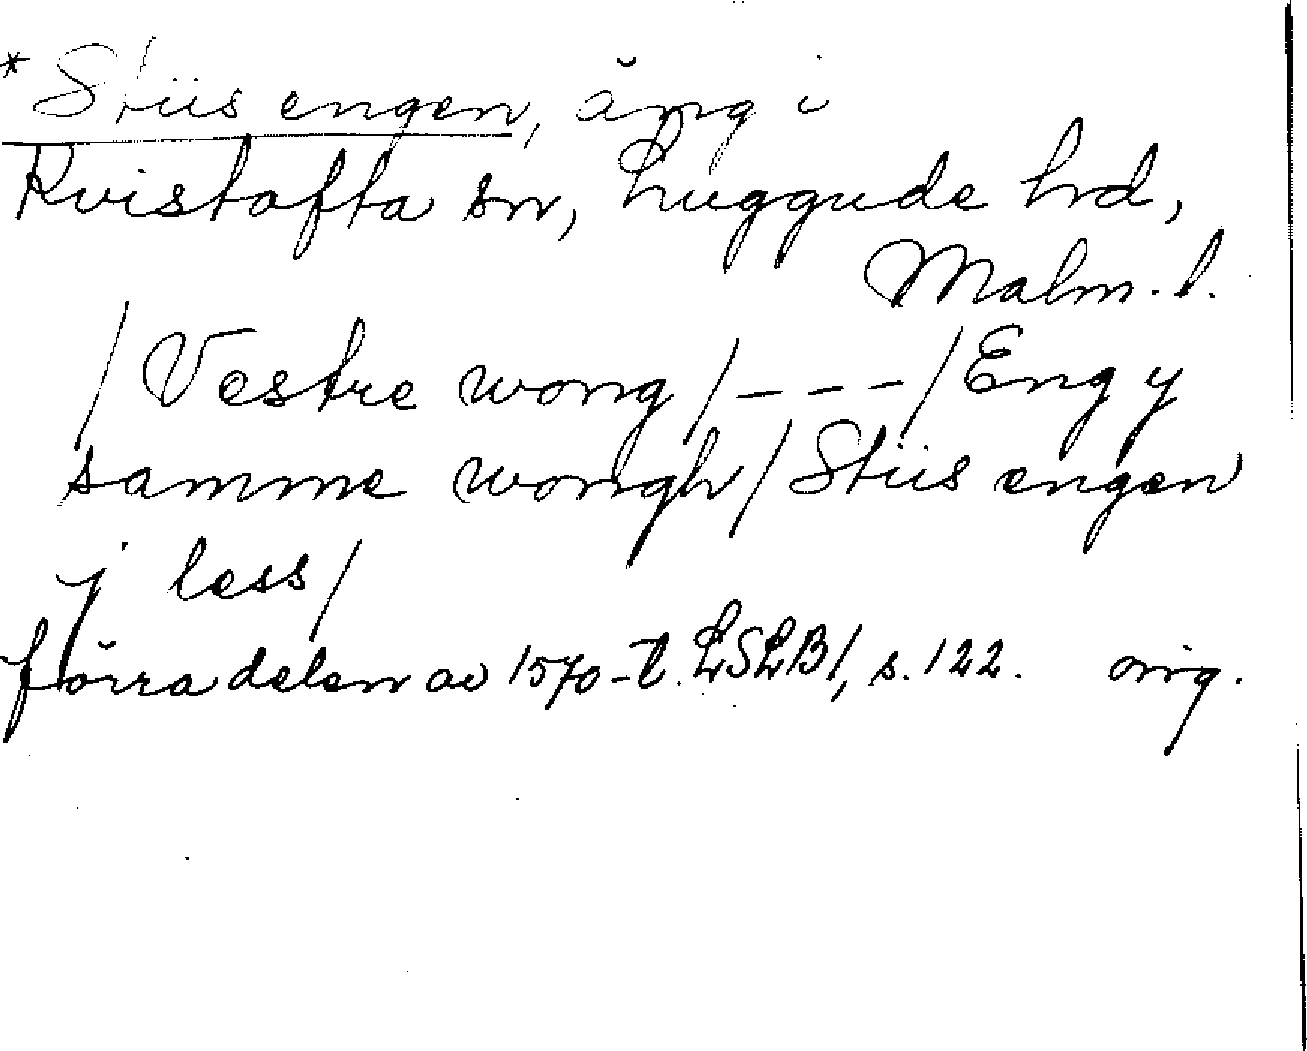 *Stiis engen, äng i
Kvistofta sn, Luggude hrd,
Malm. l.
/Vestre wong/---/Eng y
samme wongh/Stiis engen
j less/
förra delen av 1570-t. LSLB1, s. 122. orig.